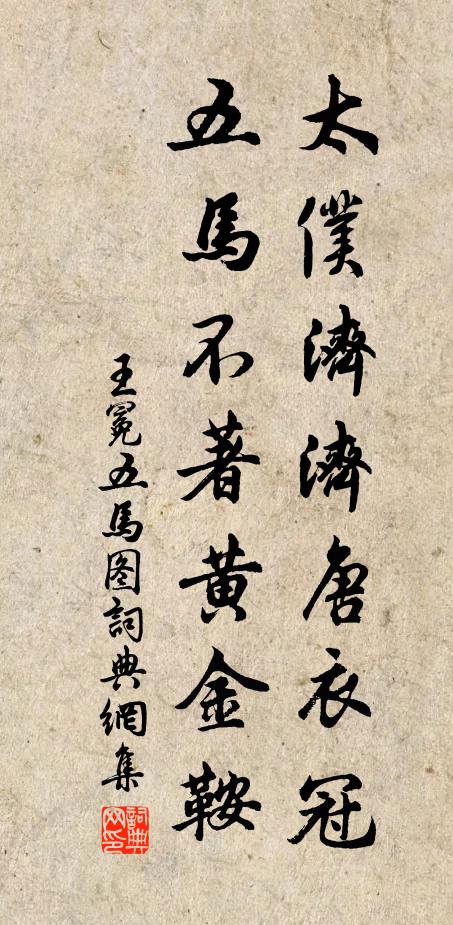 太僕濟濟唐衣冠
五馬不著黃金鞍
王冕五馬图詞典網集
詞典網印